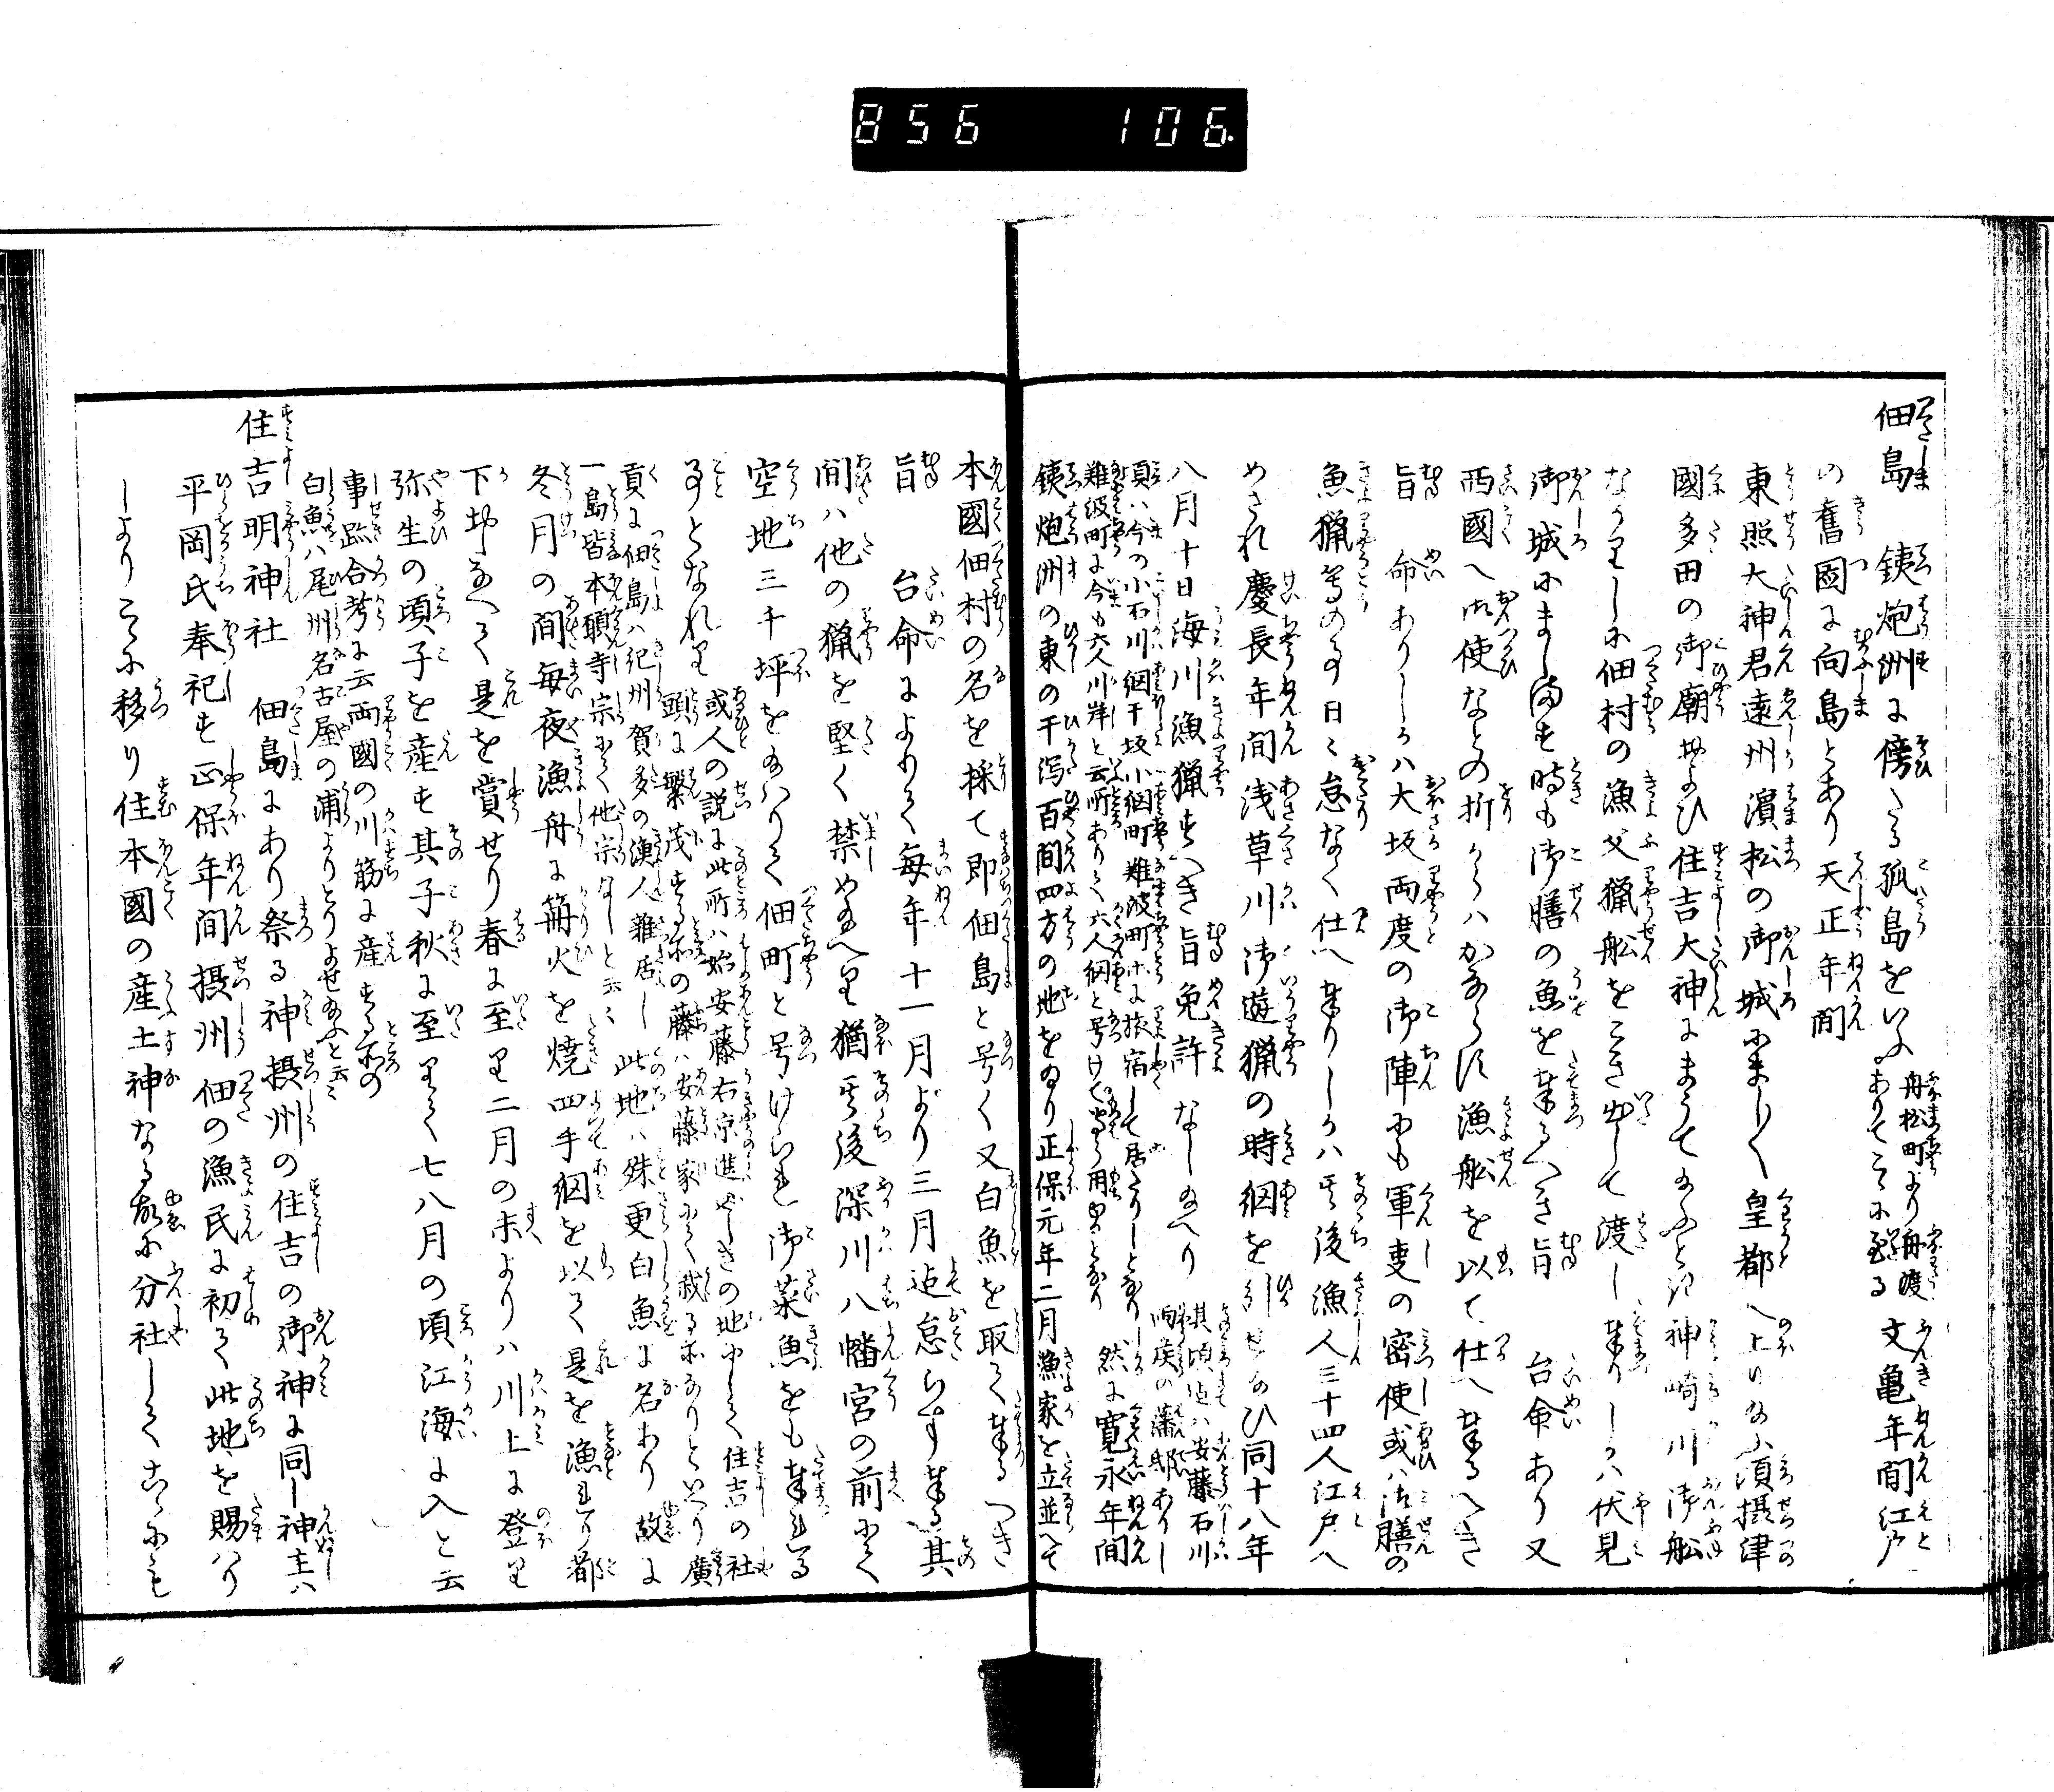 856 106.
佃島 鉄炮洲に傍たる孤島をいふ 舟松町より舟渡ありてこゝに至る 文亀年間江戸
の舊図に向島とあり天正年間
東照大神君遠州濱松の御城にましく皇都へ上り給ふ頃摂津
國多田の御廟および住吉大神にまうて給ふと記神崎川御舩
なかりしに佃村の漁父猟舩をこき出して渡し奉りしかハ伏見
御城にまし〳〵ける時も御膳の魚を奉るへき旨 台命あり又
西國へ御使なとの折からハかならす漁舩を以て仕へ奉るへき
旨 命ありしかハ大坂両度の御陣にも軍事の密使或ハ御膳の
魚猟等の事日々怠なく仕へ奉りしかハ其後漁人三十四人江戸へ
めされ慶長年間浅草川御遊猟の時網を引せ給ひ同十八年
八月十日海川漁猟すへき旨免許なし給へり 其頃迄ハ安藤石川両侯の藩邸ありし
頃ハ今の小石川網干坂小網町難波町等に旅宿して居たりしとなり
難波町に今も六人川岸と云所ありて六人網と号けて専ら用るとなり 然に寛永年間
鉄炮洲の東の干潟百間四方の地を給り正保元年二月漁家を立並へて
本國佃村の名を採て即佃島と号く又白魚を取て奉るへき
旨 台命によりて毎年十一月より三月迄怠らす奉る其
間ハ他の猟を堅く禁め給へり猶其後深川八幡宮の前にて
空地三千坪を給ハりて佃町と号けられ御菜魚をも奉れる
事となれり 或人の説に此所ハ始安藤右京進やしきの地にして住吉の社
頭に繁茂する所の藤ハ安藤家にて栽る所なりといへり 廣
貢に佃島ハ紀州賀多の漁人雜居し
一島皆本願寺宗にて他宗なしと云々 此地ハ殊更白魚に名あり故に
冬月の間毎夜漁舟に篝火を焼四手網を以て是を漁れり都
下挙て是を賞せり春に至り二月の末よりハ川上に登り
弥生の頃子を産す其子秋に至りて七八月の頃江海に入と云
事跡合考に云両國の川筋に産する所の
白魚ハ尾州名古屋の浦よりとりよせ給ふと云云
住吉明神社 佃島にあり祭る神摂州の住吉の御神に同し神主ハ
平岡氏奉祀す正保年間摂州佃の漁民に初て此地を賜ハり
しよりこゝに移り住本國の産土神なる故に分社してこゝにも